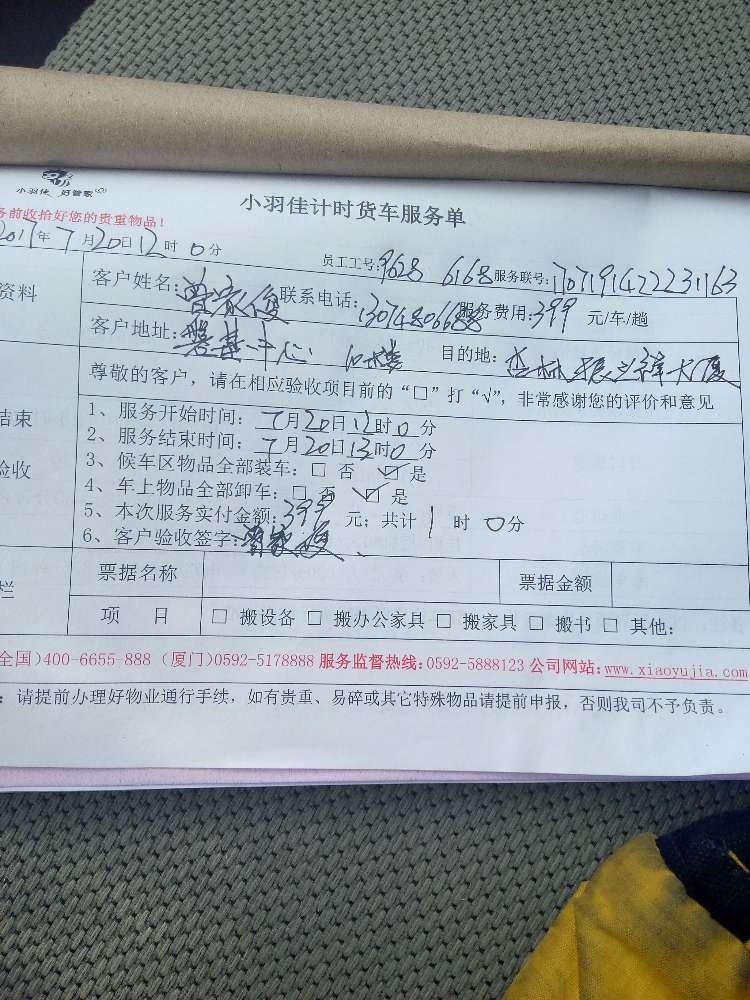 小羽佳 好管家
小羽佳计时货车服务单
务前收拾好您的贵重物品！
2017年7月20日12时0分
员工工号:9628 6168 服务联号:1707191422231163
资料
客户姓名:曾家俊 联系电话:13074806688 服务费用:399 元/车/趟
客户地址:磐基中心 10楼 目的地:杏林振兴大厦
尊敬的客户，请在相应验收项目前的“□”打“√”，非常感谢您的评价和意见
结束
验收
1、服务开始时间：7月20日12时0分
2、服务结束时间：7月20日13时0分
3、候车区物品全部装车：□ 否 ☑ 是
4、车上物品全部卸车：□ 否 ☑ 是
5、本次服务实付金额:399 元；共计1时0分
6、客户验收签字:曾家俊
栏
票据名称 票据金额
项 目 □ 搬设备 □ 搬办公家具 □ 搬家具 □ 搬书 □ 其他：
全国)400-6655-888 (厦门)0592-5178888 服务监督热线:0592-5888123 公司网站:www.xiaoyujia.com
：请提前办理好物业通行手续，如有贵重、易碎或其它特殊物品请提前申报，否则我司不予负责。